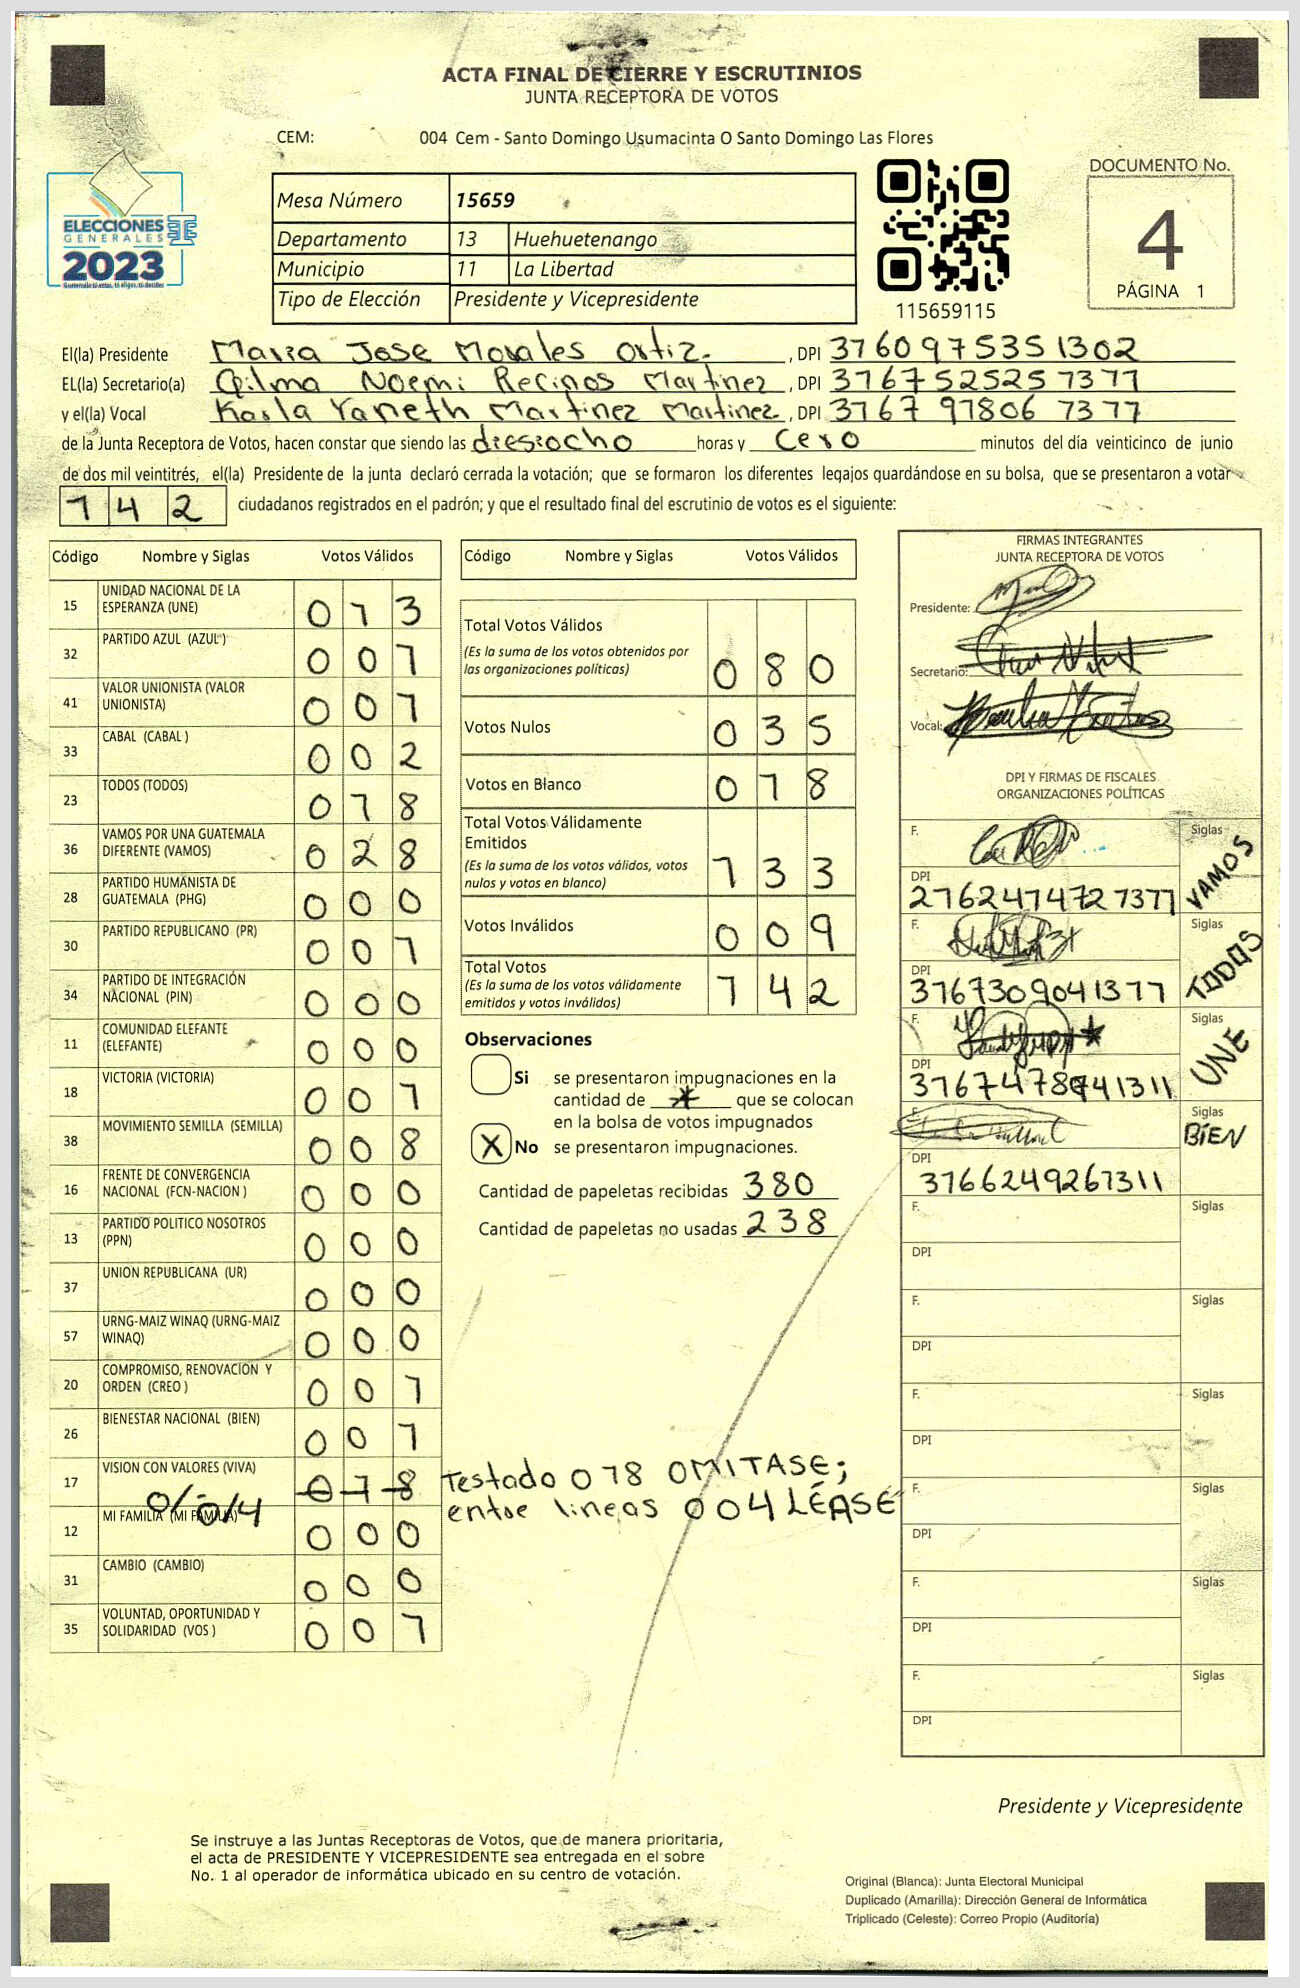 ACTA FINAL DE CIERRE Y ESCRUTINIOS
JUNTA RECEPTORA DE VOTOS
CEM: 004 Cem - Santo Domingo Usumacinta O Santo Domingo Las Flores
ELECCIONES
GENERALES
2023
Mesa Número 15659
Departamento 13 Huehuetenango
Municipio 11 La Libertad
Tipo de Elección Presidente y Vicepresidente
115659115
DOCUMENTO No.
4
PÁGINA 1
El(la) Presidente Maria Jose Morales Ortiz. , DPI 3760975351302
EL(la) Secretario(a) Gilma Noemi Recinos Martinez , DPI 3767 52525 1311
y el(la) Vocal Karla Yaneth Martinez Martinez , DPI 3767 91806 1311
de la Junta Receptora de Votos, hacen constar que siendo las diesiocho horas y Cero minutos del día veinticinco de junio
de dos mil veintitrés, el(la) Presidente de la junta declaró cerrada la votación; que se formaron los diferentes legajos guardándose en su bolsa, que se presentaron a votar
142 ciudadanos registrados en el padrón; y que el resultado final del escrutinio de votos es el siguiente:
Código Nombre y Siglas Votos Válidos
15 UNIDAD NACIONAL DE LA ESPERANZA (UNE) 013
32 PARTIDO AZUL (AZUL) 001
41 VALOR UNIONISTA (VALOR UNIONISTA) 001
33 CABAL (CABAL ) 002
23 TODOS (TODOS) 018
36 VAMOS POR UNA GUATEMALA DIFERENTE (VAMOS) 028
28 PARTIDO HUMANISTA DE GUATEMALA (PHG) 000
30 PARTIDO REPUBLICANO (PR) 001
34 PARTIDO DE INTEGRACIÓN NACIONAL (PIN) 000
11 COMUNIDAD ELEFANTE (ELEFANTE) 000
18 VICTORIA (VICTORIA) 001
38 MOVIMIENTO SEMILLA (SEMILLA) 008
16 FRENTE DE CONVERGENCIA NACIONAL (FCN-NACION ) 000
13 PARTIDO POLITICO NOSOTROS (PPN) 000
37 UNION REPUBLICANA (UR) 000
57 URNG-MAIZ WINAQ (URNG-MAIZ WINAQ) 000
20 COMPROMISO, RENOVACION Y ORDEN (CREO ) 001
26 BIENESTAR NACIONAL (BIEN) 001
17 VISION CON VALORES (VIVA) 018 Testado 018 OMITASE;
0/-0/4 entre lineas 004 LÉASE
12 MI FAMILIA (MI FAMILIA) 000
31 CAMBIO (CAMBIO) 000
35 VOLUNTAD, OPORTUNIDAD Y SOLIDARIDAD (VOS ) 001
Código Nombre y Siglas Votos Válidos
Total Votos Válidos 080
(Es la suma de los votos obtenidos por
las organizaciones politicas)
Votos Nulos 035
Votos en Blanco 018
Total Votos Válidamente
Emitidos 133
(Es la suma de los votos válidos, votos
nulos y votos en blanco)
Votos Inválidos 009
Total Votos 142
(Es la suma de los votos válidamente
emitidos y votos inválidos)
Observaciones
Si se presentaron impugnaciones en la
cantidad de * que se colocan
en la bolsa de votos impugnados
X No se presentaron impugnaciones.
Cantidad de papeletas recibidas 380
Cantidad de papeletas no usadas 238
FIRMAS INTEGRANTES
JUNTA RECEPTORA DE VOTOS
Presidente:
Secretario:
Vocal:
DPI Y FIRMAS DE FISCALES
ORGANIZACIONES POLÍTICAS
F. Siglas VAMOS
DPI 2762414721311
F. Siglas TODOS
DPI 3767309041311
F. Siglas UNE
DPI 3767478941311
F. Siglas BIEN
DPI 3766249261311
F. Siglas
DPI
F. Siglas
DPI
F. Siglas
DPI
F. Siglas
DPI
F. Siglas
DPI
F. Siglas
DPI
Presidente y Vicepresidente
Se instruye a las Juntas Receptoras de Votos, que de manera prioritaria,
el acta de PRESIDENTE Y VICEPRESIDENTE sea entregada en el sobre
No. 1 al operador de informática ubicado en su centro de votación.
Original (Blanca): Junta Electoral Municipal
Duplicado (Amarilla): Dirección General de Informática
Triplicado (Celeste): Correo Propio (Auditoría)